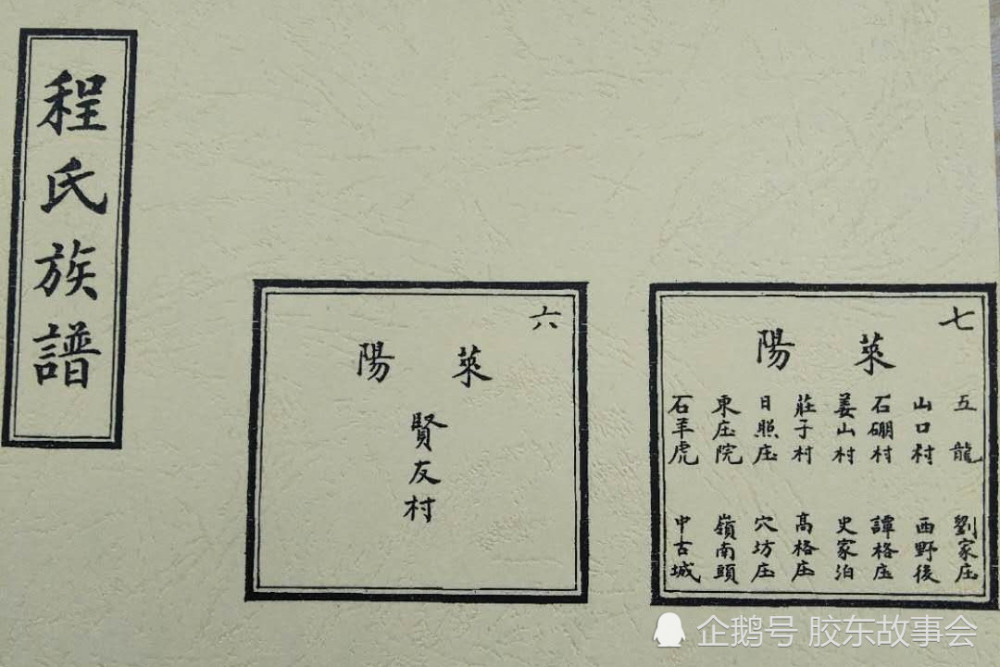 程氏族譜
六
萊陽
賢友村
七
萊陽
五龍
山口村
石硼村
姜山村
莊子村
日照庄
東庄院
石羊虎
劉家庄
西野後
譚格庄
史家泊
高格庄
穴坊庄
嶺南頭
中古城
企鹅号 胶东故事会